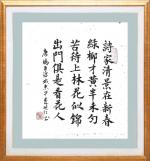 詩家清景在新春
綠柳才黃半未勻
若待上林花似錦
出門俱是看花人
唐楊巨源城東早春